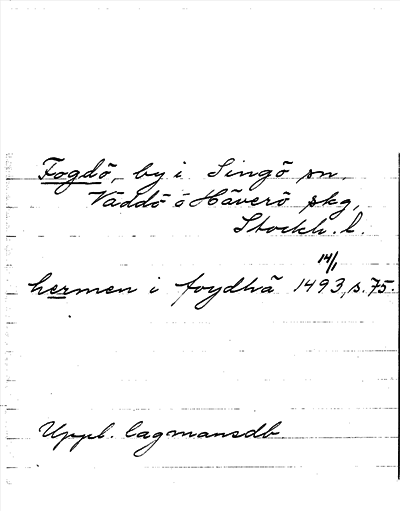 Fogdö, by i Singö sn.
Väddö o Häverö skg,
Stockh. l.
14/1
hermen i foydhä 1493, s. 75.
Uppl. lagmansdb